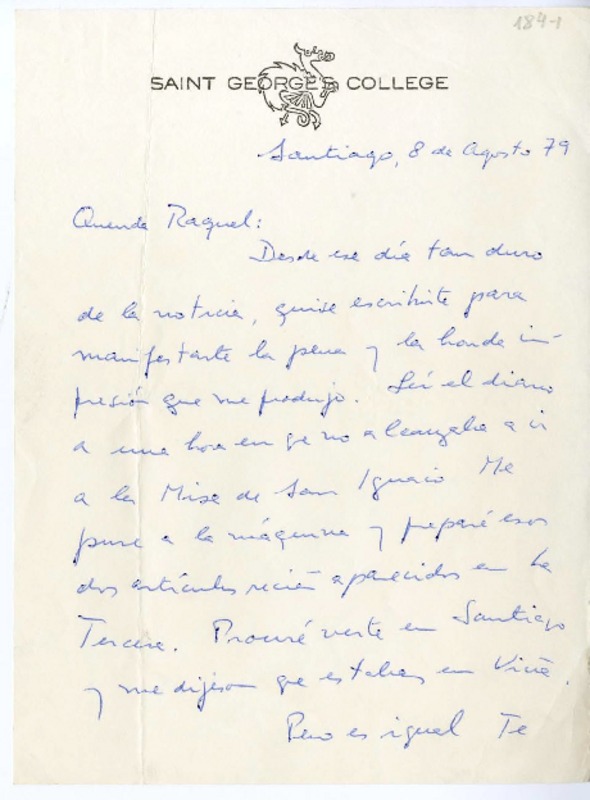 184-1
SAINT GEORGE'S COLLEGE
Santiago, 8 de Agosto 79
Querida Raquel:
Desde ese día tan duro
de la noticia, quise escribirte para
manifestarte la pena y la honda im-
presión que me produjo. Leí el diario
a una hora en qe no alcanzaba a ir
a la Misa de San Ignacio Me
puse a la máquina y preparé esos
dos artículos recién aparecidos en La
Tercera. Procuré verte en Santiago
y me dijeron que estabas en Viña.
Pero es igual Te